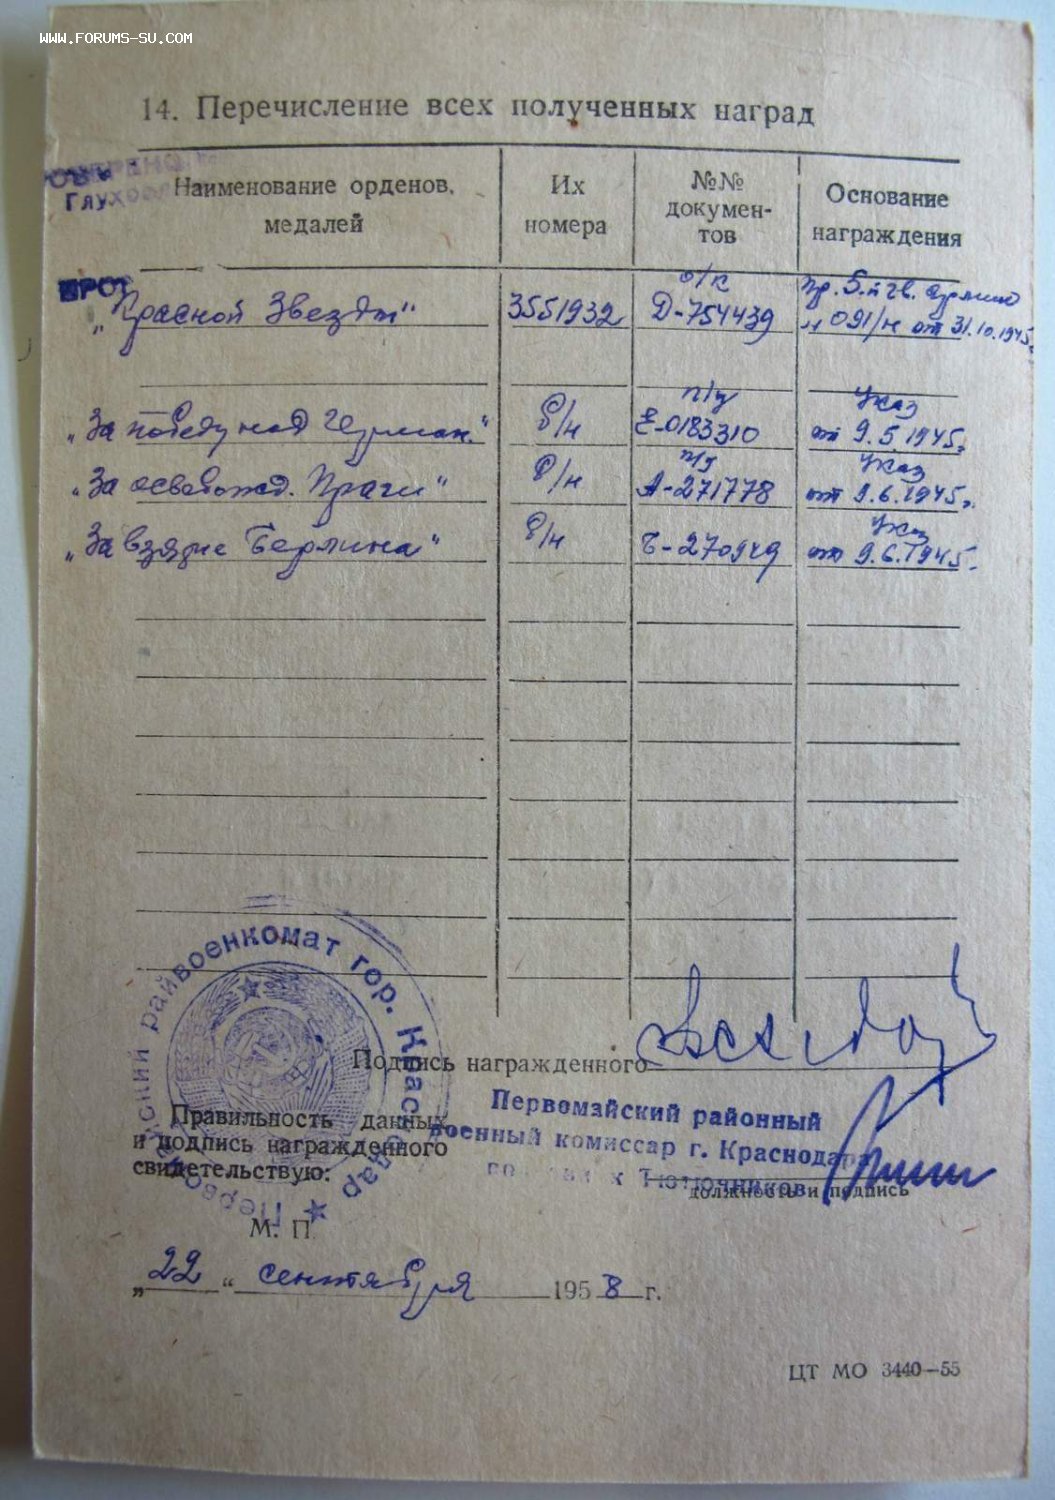 WWW.FORUMS-SU.COM
14. Перечисление всех полученных наград
Наименование орденов, медалей
Их номера
№№ докумен-тов
Основание награждения
„Красной Звезды" 3551932 о/к Д-754439 Пр. 5.й гв. армии № 091/н от 31.10.1945г.
„За победу над Герман." б/н п/у Е-0183310 Указ от 9.5.1945г.
„За освобожд. Праги" б/н п/у А-271778 Указ от 9.6.1945г.
„За взятие Берлина" б/н Б-270949 Указ от 9.6.1945г.
Подпись награжденного
Правильность данных
и подпись награжденного
свидетельствую:
Первомайский районный
военный комиссар г. Краснодара
Тютюнников
должность и подпись
райвоенкомат гор. Краснодар
М. П
„22" сентября 1958 г.
ЦТ МО 3440—55